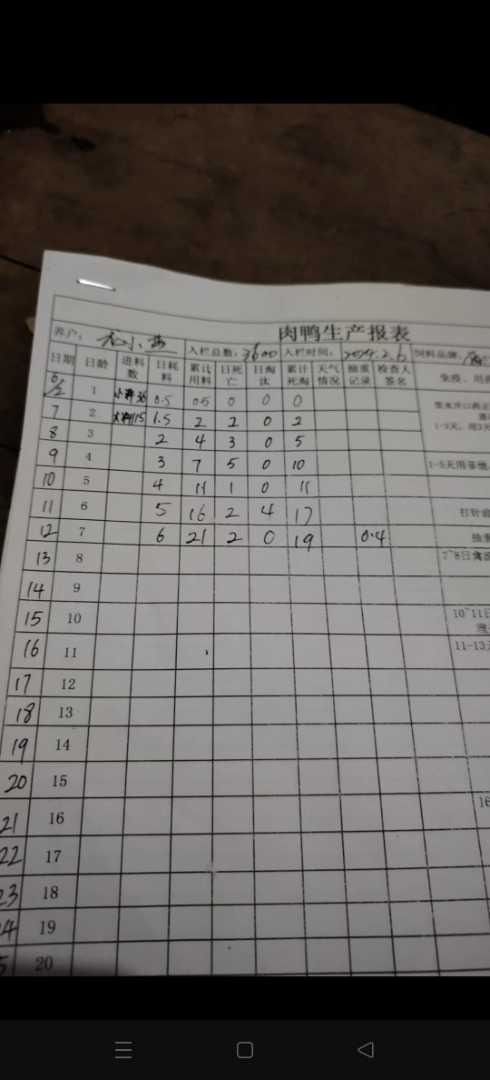 肉鸭生产报表
养户： 入栏总数：3600 入栏时间：2024.2.6 饲料品牌：
日期 日龄 进料数 日耗料 累计用料 日死亡 日淘汰 累计死淘 天气情况 抽重记录 检查人签名 免疫、用
6/2 1 0.5 0.5 0 0 0
7 2 1.5 2 2 0 2
1-3天，用
8 3 2 4 3 0 5
9 4 3 7 5 0 10 1-5天用
10 5 4 11 1 0 11
11 6 5 16 2 4 17 打针前
12 7 6 21 2 0 19 0.4 抽重
13 8 7~8日
14 9
15 10 10~11日
16 11 11-13
17 12
18 13
19 14
20 15
21 16 16
22 17
23 18
4 19
5 20